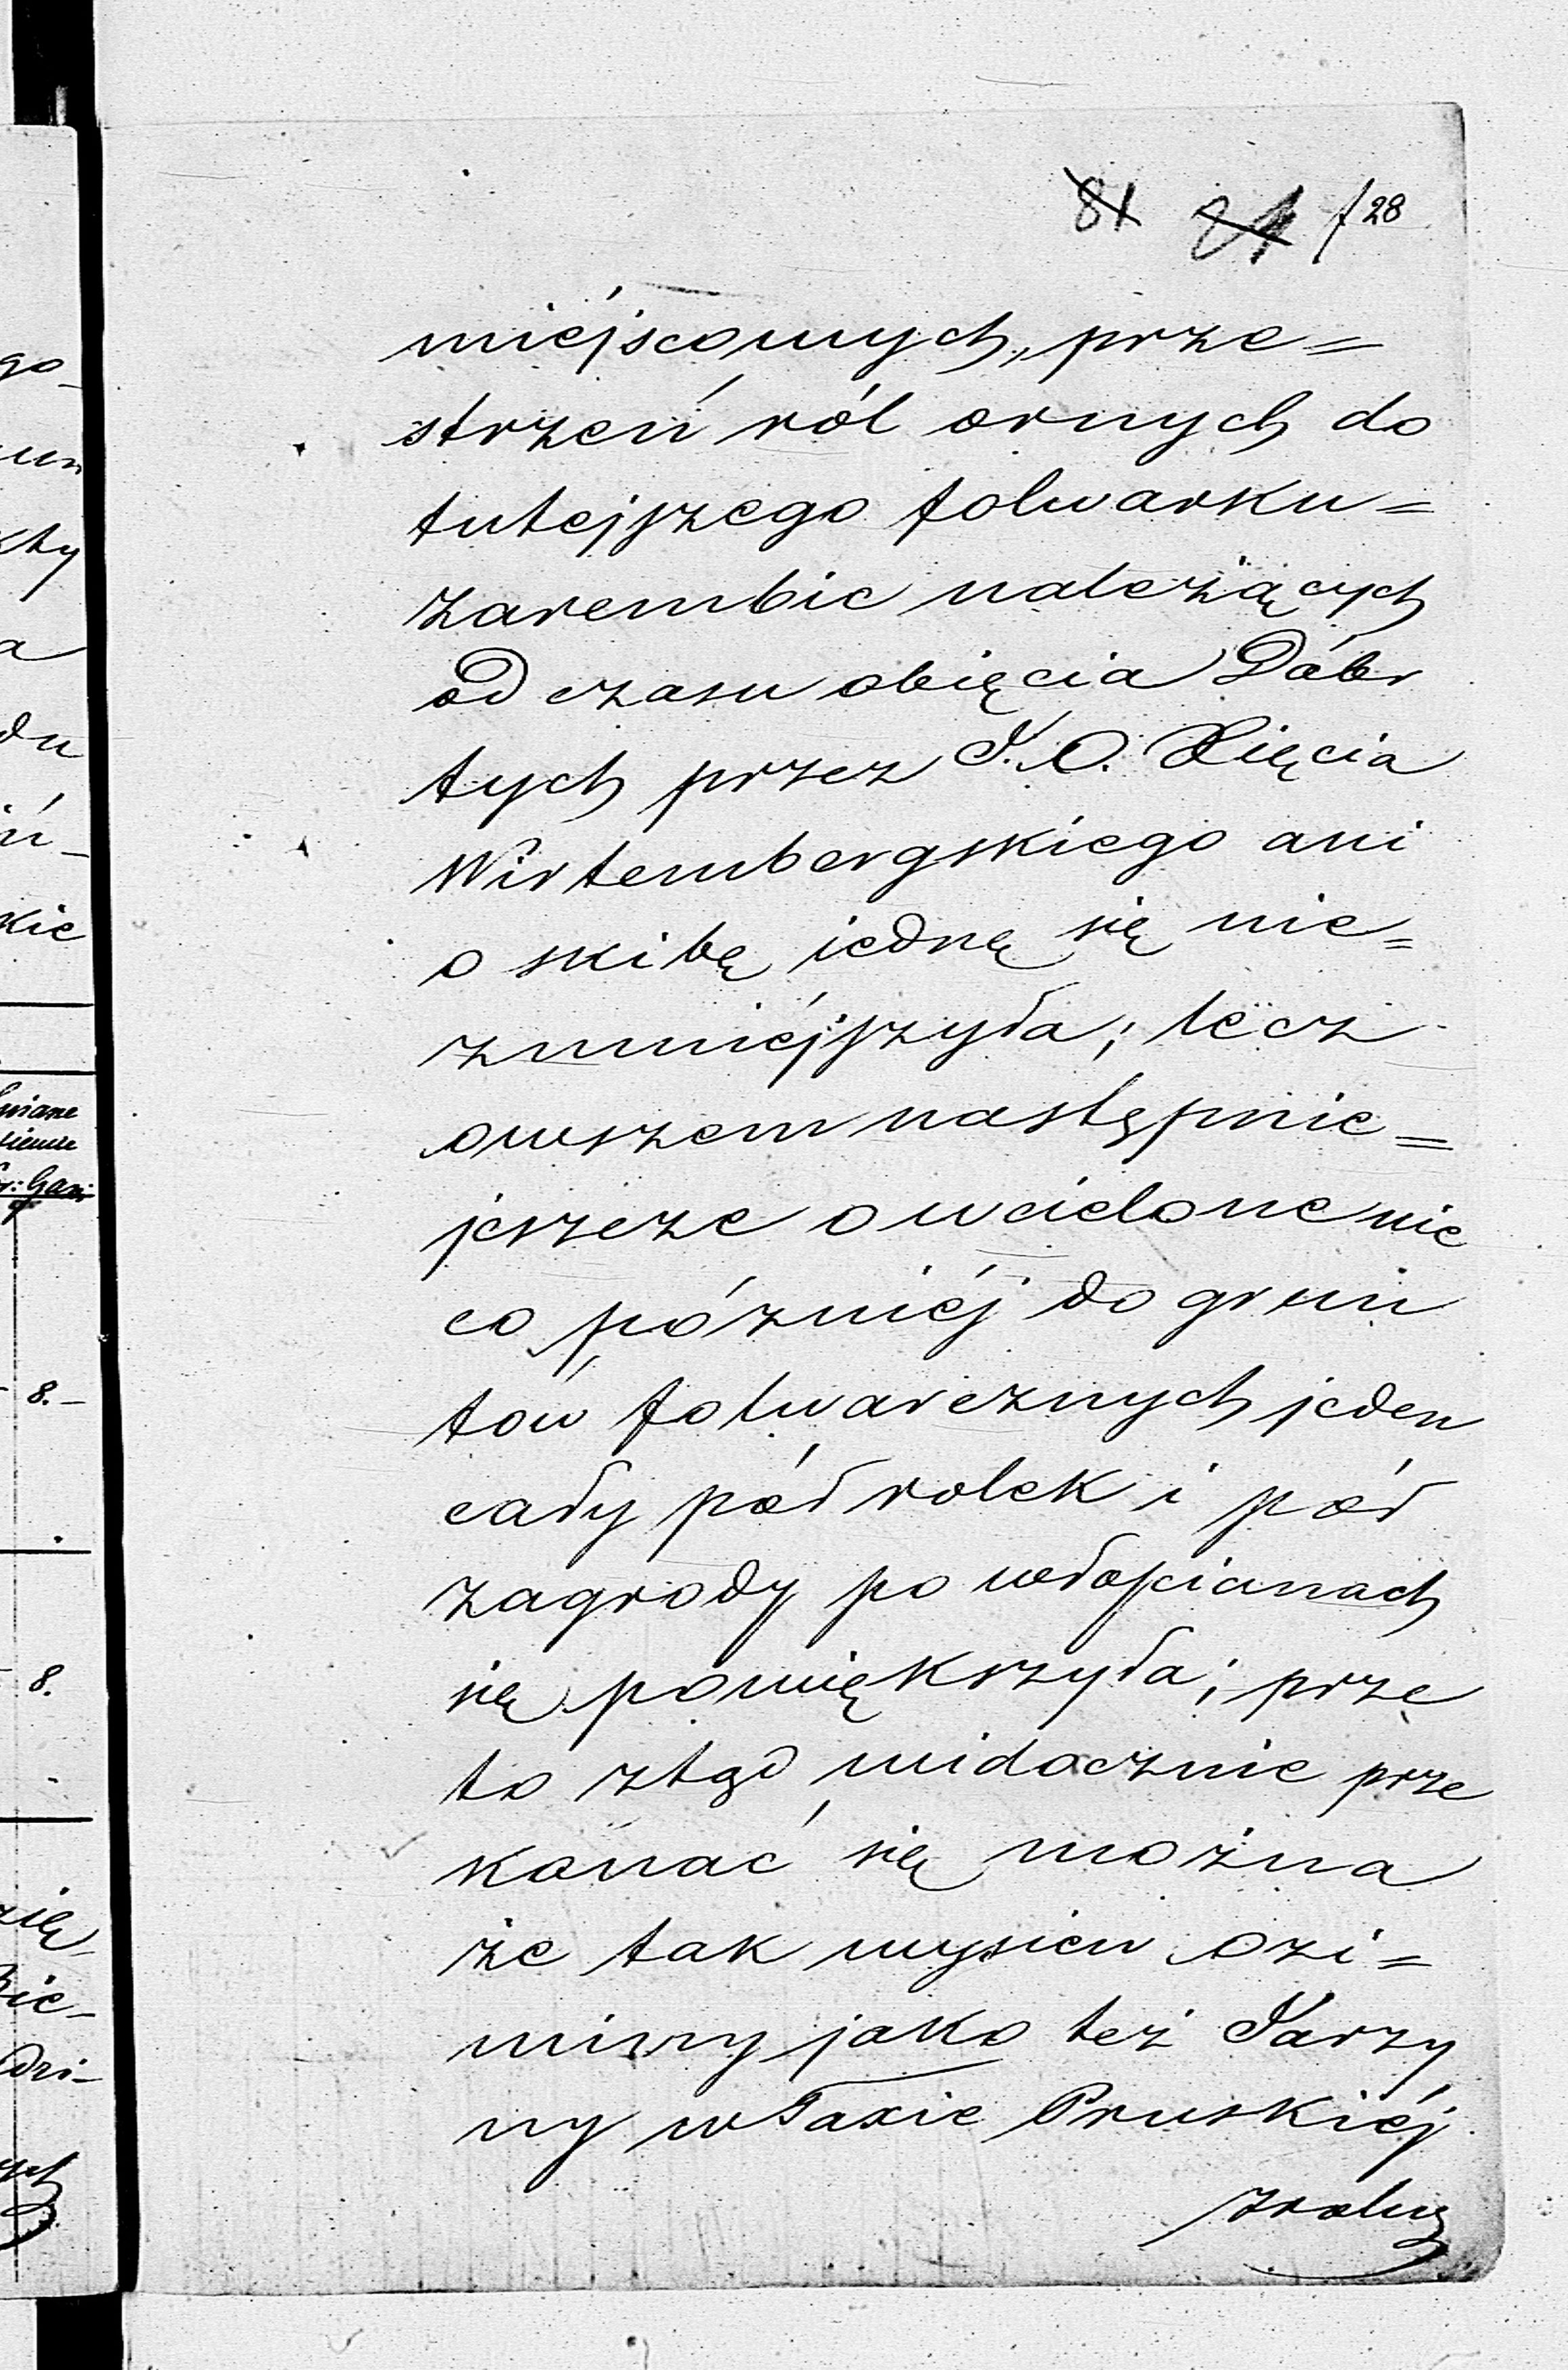 81 21 f 28
miéjscowych, prze=
strzeń ról ornych do
tutejszego folwarku=
Zarembic należących
od czasu obięcia Dóbr
tych przez J. O. Xięcia
Wirtembergskiego ani
o skibę iednę się nie=
zmniéjszyła; lecz
owszem następnie=
jeszcze o wcielone nie
co późniéj do grun
tów folwarcznych jeden
cały pół rolek i pół
zagrody po włościanach
się powiększyła; prze
to ztąd widocznie prze
konać się można
że tak wysiew ozi=
miny jako też Jarzy
ny w Taxie Pruskiéj
8.
8.